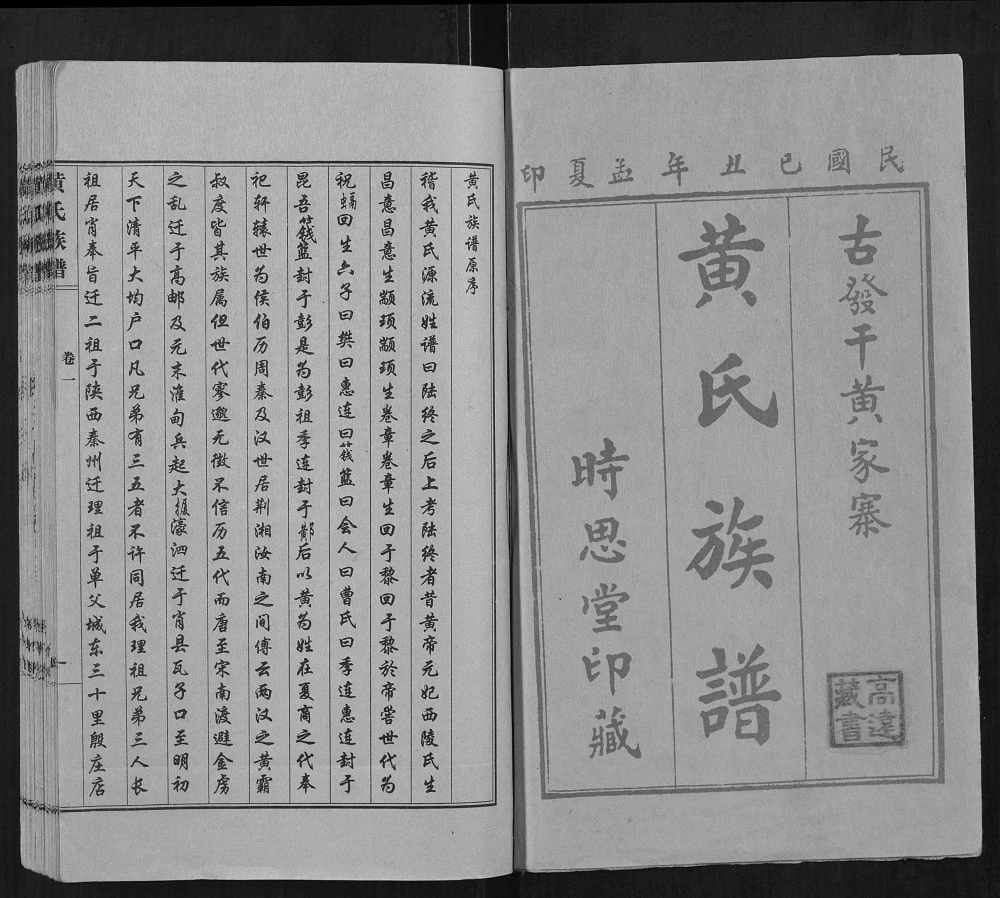 民國己丑年孟夏印
古發干黄家寨
黄氏族譜
時思堂印藏
高達
藏書
黄氏族谱原序
稽我黄氏源流姓谱曰陆终之后上考陆终者昔黄帝元妃西陵氏生
昌意昌意生颛顼颛顼生卷章卷章生回于黎回于黎於帝喾世代为
祝回生六子曰樊曰惠连曰篯篮曰会人曰曹氏曰季连惠连封于
昆吾篯篮封于彭是为彭祖季连封于鄚后以黄为姓在夏商之代奉
祀轩辕世为侯伯历周秦及汉世居荆湘汝南之间傅云两汉之黄霸
叔度皆其族属但世代寥邈无徵不信历五代而唐至宋南渡避金虏
之乱迁于高邮及元末淮甸兵起大扰濠泗迁于肖县瓦子口至明初
天下清平大均户口凡兄弟有三五者不许同居我理祖兄弟三人长
祖居肖奉旨迁二祖于陕西秦州迁理祖于单父城东三十里殷庄店
黄氏族谱
卷一
一